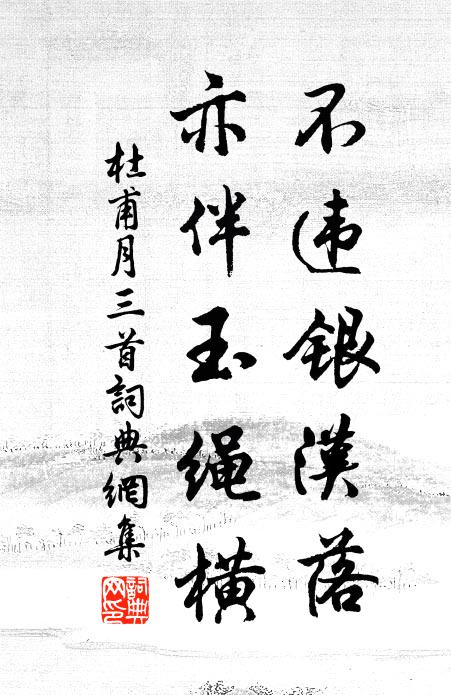 不违银汉落
亦伴玉绳横
杜甫月三首詞典網集
詞典網印